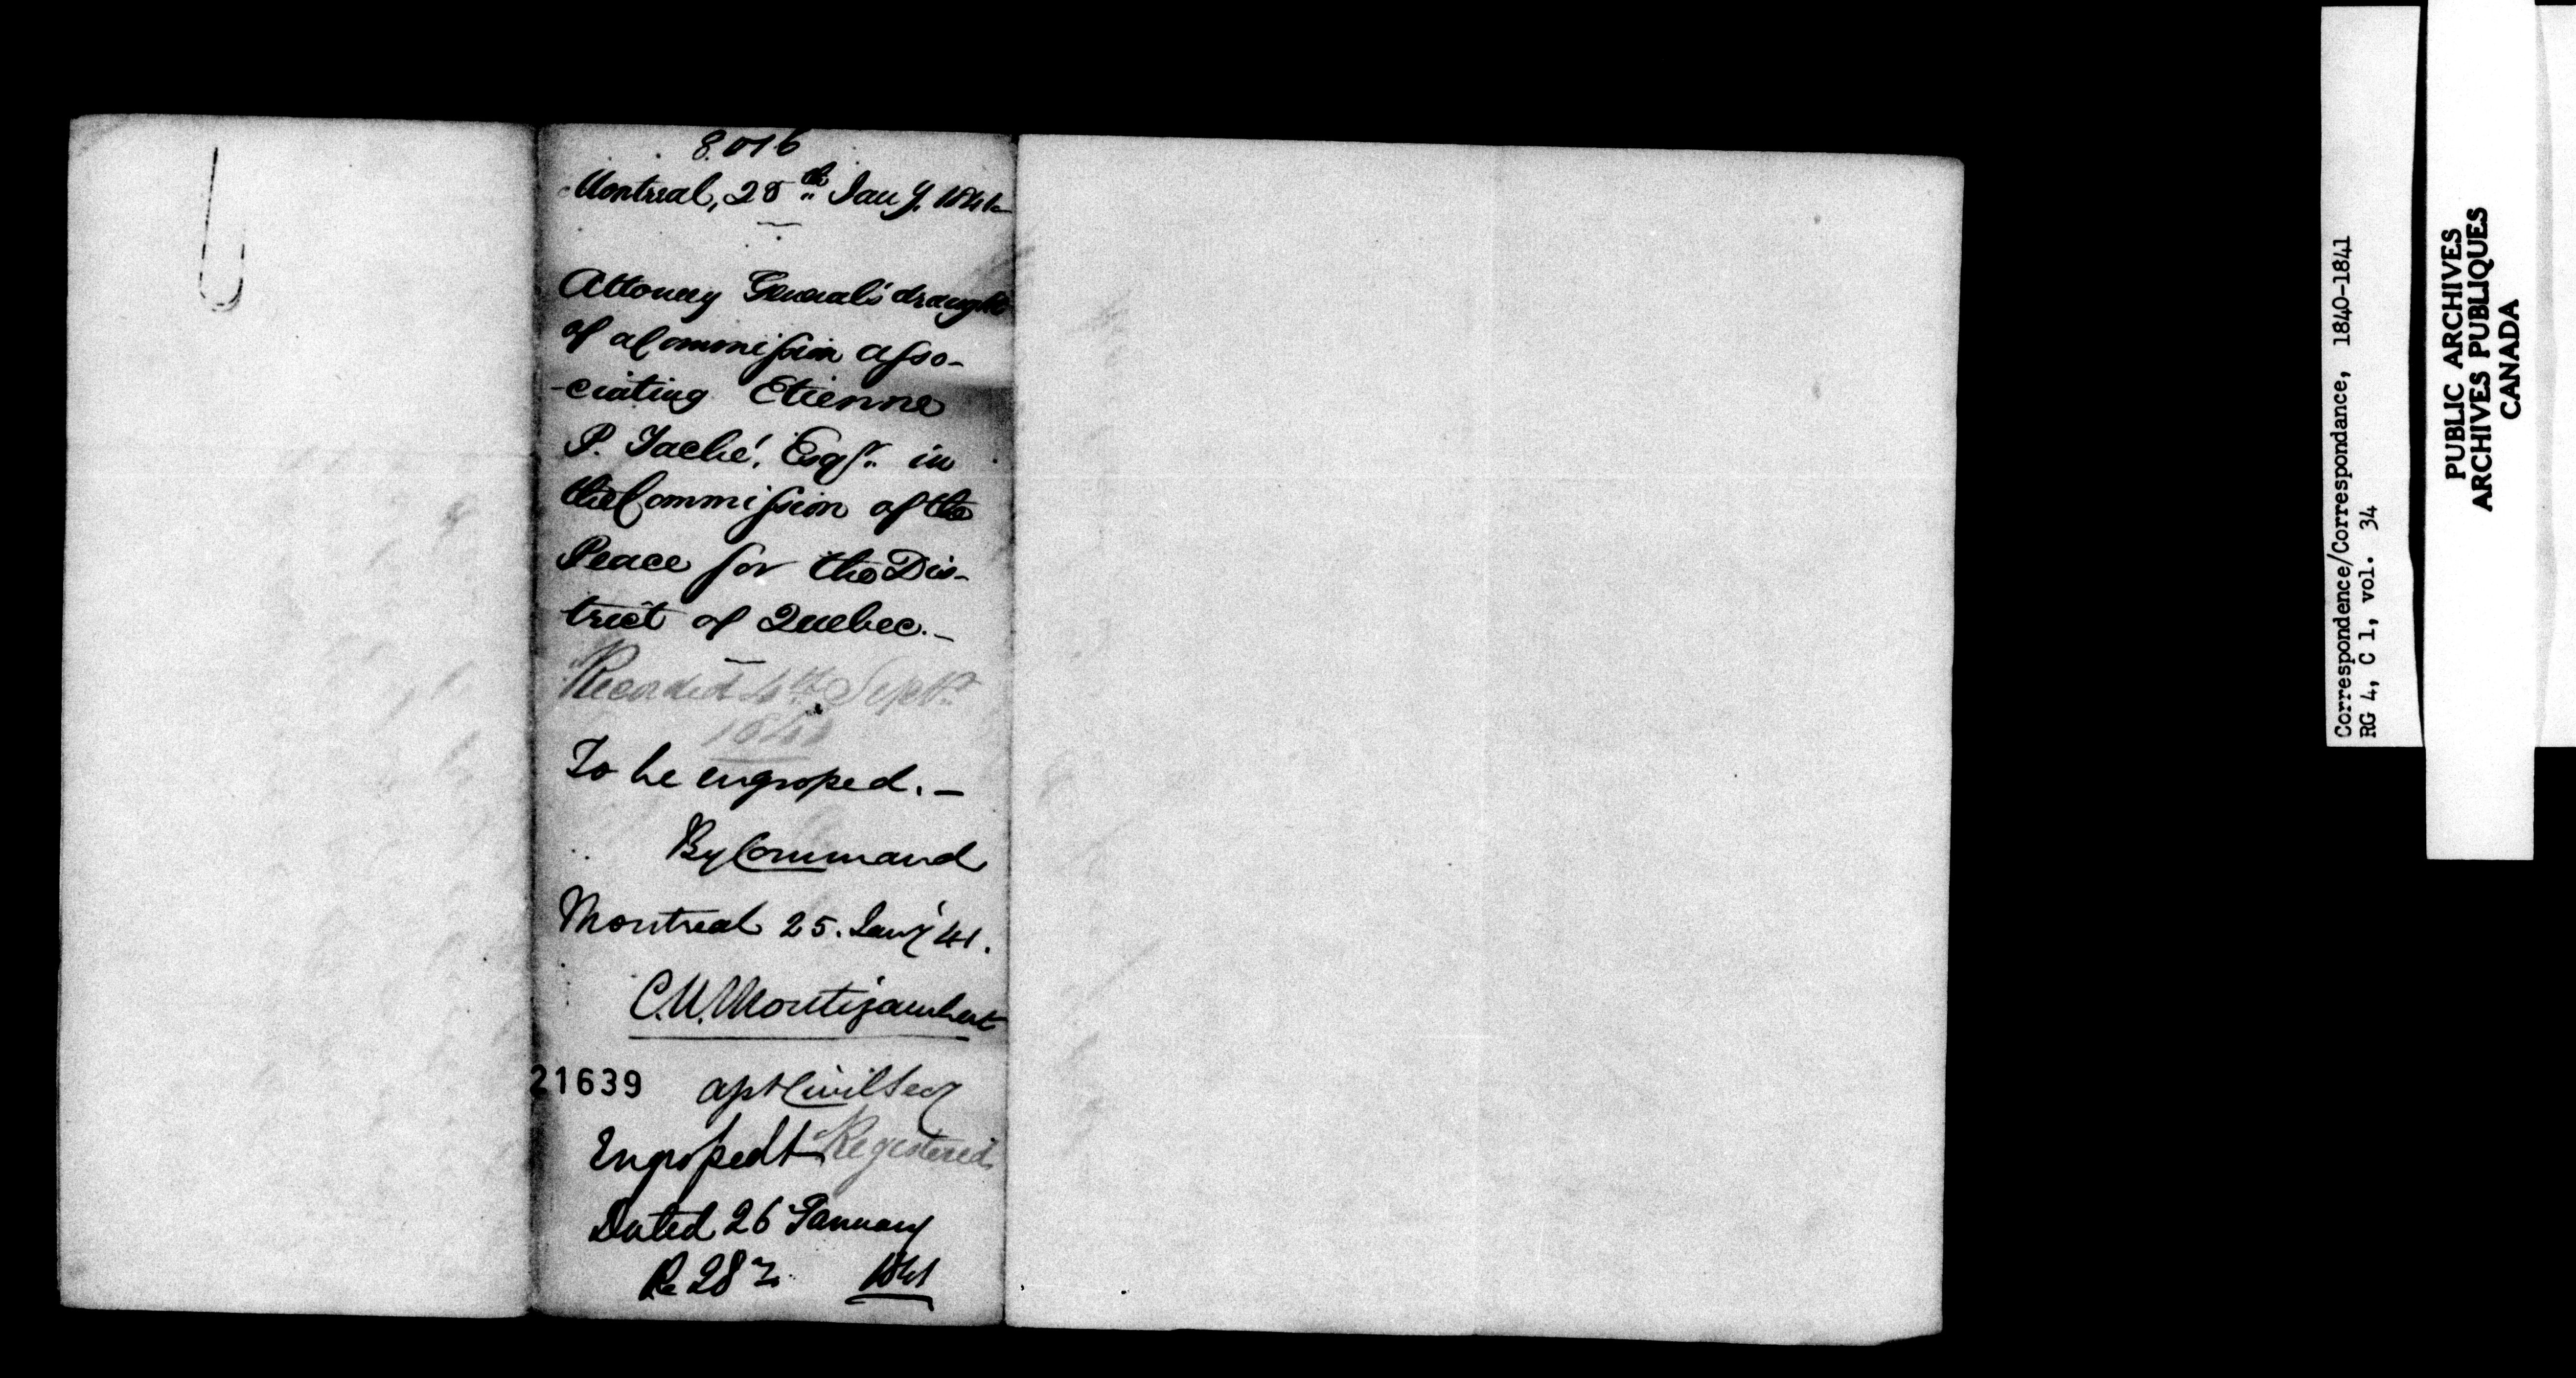 8.016
Montreal, 28th Jany. 1841
Attorney General's draught
of a Commission asso-
-ciating Etienne
P. Taché, Esqr. in
the Commission of the
Peace for the Dis-
trict of Quebec.-
Recorded 4th Septr.
To be engrossed.-
By Command
Montreal 25. Jany 41.
C.U. Montizambert
21639 asst Civil Secy
Engrossed + Registered
Dated 26 January
1841
Correspondence/Correspondance, 1840-1841
RG 4, C 1, vol. 34
PUBLIC ARCHIVES
ARCHIVES PUBLIQUES
CANADA